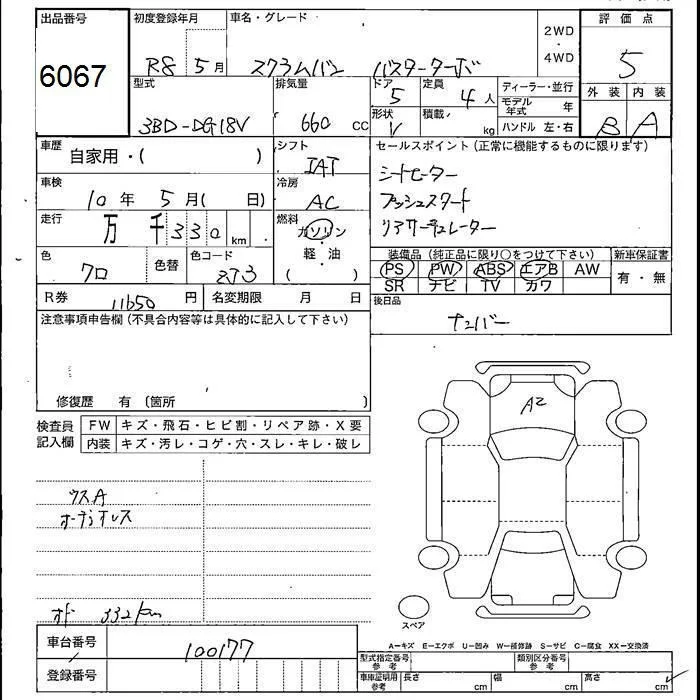 出品番号 初度登録年月 車名・グレード 2WD 評価点
6067 R8 5月 スクラムバン バスターターボ 4WD 5
型式 排気量 ドア 定員 ディーラー・並行 外装 内装
3BD-DG18V 660 CC 5 4人 モデル年式 年 B A
形状 V 積載 kg ハンドル 左・右
車歴 自家用・( ) シフト IAT セールスポイント (正常に機能するものに限ります)
車検 10年 5月( 日) 冷房 AC シートヒーター
プッシュスタート
走行 万 千 330 km 燃料 ガソリン・軽・油 ( ) リアサーキュレーター
色 クロ 色替 色コード ZJ3 装備品 (純正品に限り○をつけて下さい) 新車保証書
PS PW ABS エアB AW 有・無
SR ナビ TV カワ
R券 11650円 名変期限 月 日 後日品
注意事項申告欄 (不具合内容等は具体的に記入して下さい) ナンバー
修復歴 有 〔箇所 〕
検査員記入欄 FW キズ・飛石・ヒビ割・リペア跡・X要
内装 キズ・汚レ・コゲ・穴・スレ・キレ・破レ
A2
ウスA
オーディオレス
オド 332km
スペア
車台番号 100177
A−キズ E−エクボ U−凹み W−補修跡 S−サビ C−腐食 XX−交換済
型式指定番号 参考 類別区分番号 参考
登録番号 車庫証明用 参考 長さ cm 幅 cm 高さ cm